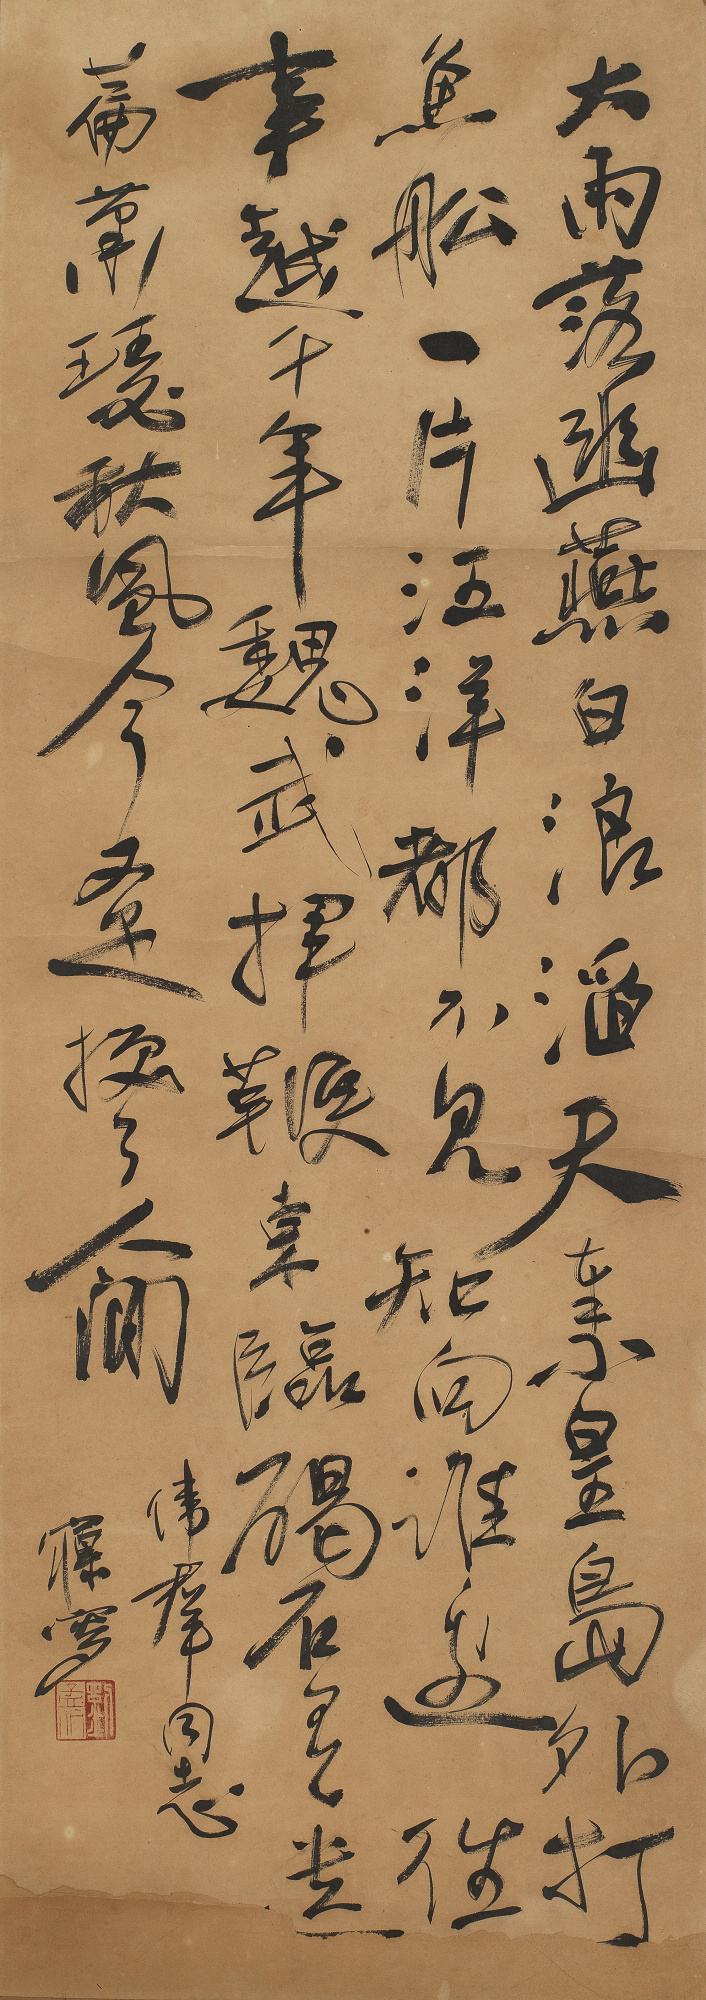 大雨落幽燕白浪滔天秦皇島外打
魚船一片汪洋都不見知向誰邊往
事越千年魏武揮鞭東臨碣石有遺
篇蕭瑟秋風今又是換了人間
偉群同志